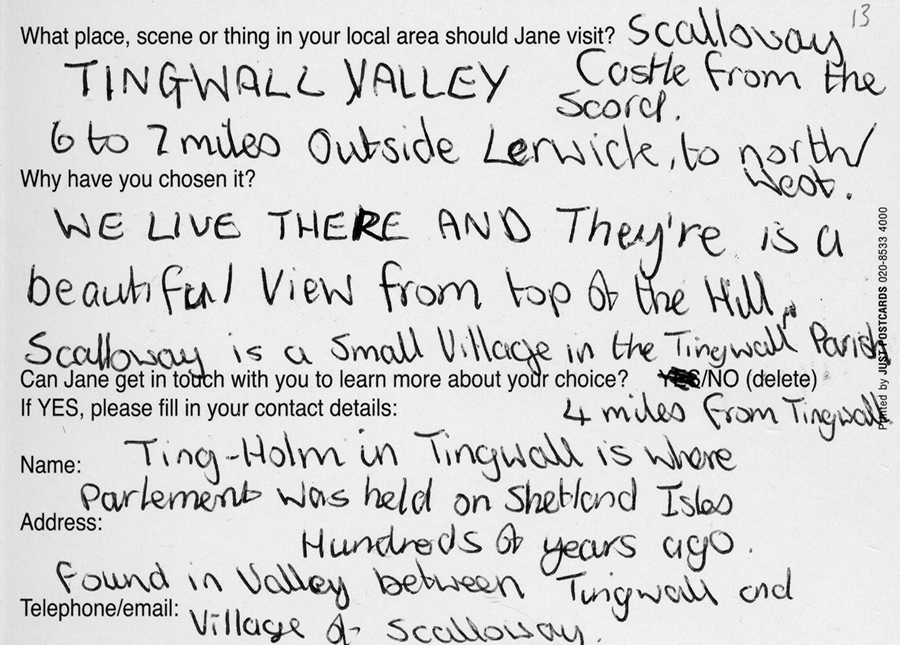 13
What place, scene or thing in your local area should Jane visit? Scalloway
TINGWALL VALLEY Castle from the
Scord.
6 to 7 miles Outside Lerwick, to north/
West.
Why have you chosen it?
WE LIVE THERE AND They're is a
beautiful View from top of the Hill,
Scalloway is a Small Village in the Tingwall Parish
Can Jane get in touch with you to learn more about your choice? YES/NO (delete)
If YES, please fill in your contact details: 4 miles from Tingwall
Name: Ting-Holm in Tingwall is where
Parlement was held on Shetland Isles
Address:
Hundreds of years ago.
Found in Valley between Tingwall and
Telephone/email: Village of Scalloway.
Printed by JUST POSTCARDS 020-8533 4000